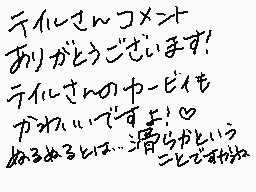 テイルさんコメント
ありがとうございます!
テイルさんのカービィも
かわいいですよ!♡
ぬるぬるとは…滑らかという
ことですかね